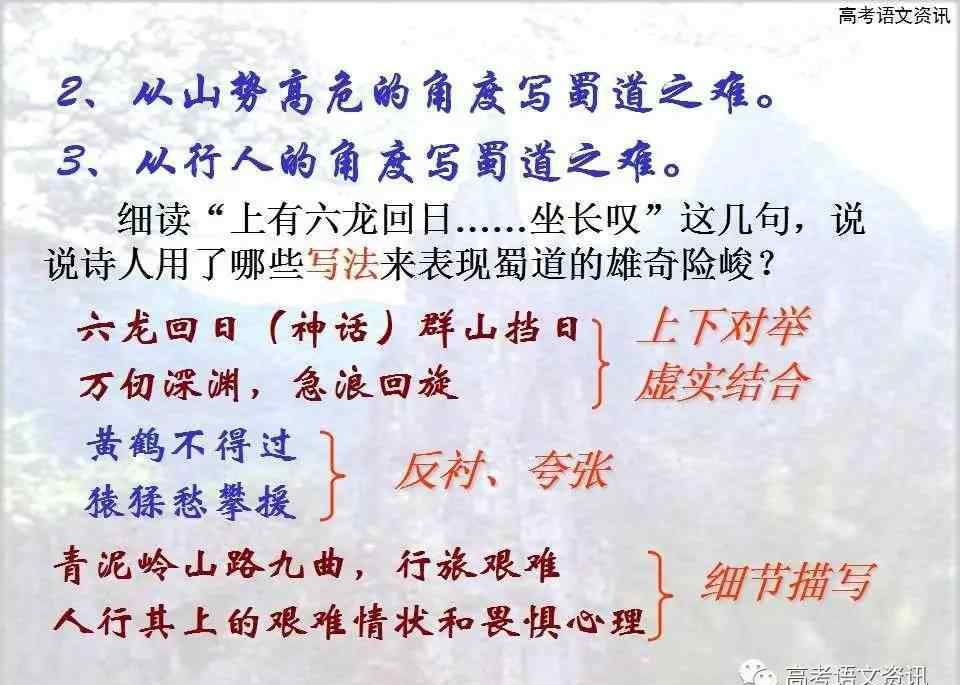 高考语文资讯
2、从山势高危的角度写蜀道之难。
3、从行人的角度写蜀道之难。
细读“上有六龙回日……坐长叹”这几句，说
说诗人用了哪些写法来表现蜀道的雄奇险峻？
六龙回日（神话）群山挡日
万仞深渊，急浪回旋
上下对举
虚实结合
黄鹤不得过
猿猱愁攀援
反衬、夸张
青泥岭山路九曲，行旅艰难
人行其上的艰难情状和畏惧心理
细节描写
高考语文资讯